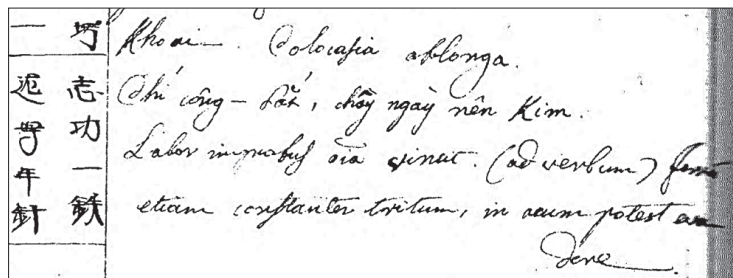 Khoai — Colocasia oblonga.
志功一鉄
迡 年針
Chí công — sắt, chầy ngày nên Kim.
Labor improbus oĩa vincit. (ad verbum)
etiam constanter tritum, in acum potest eva
dere